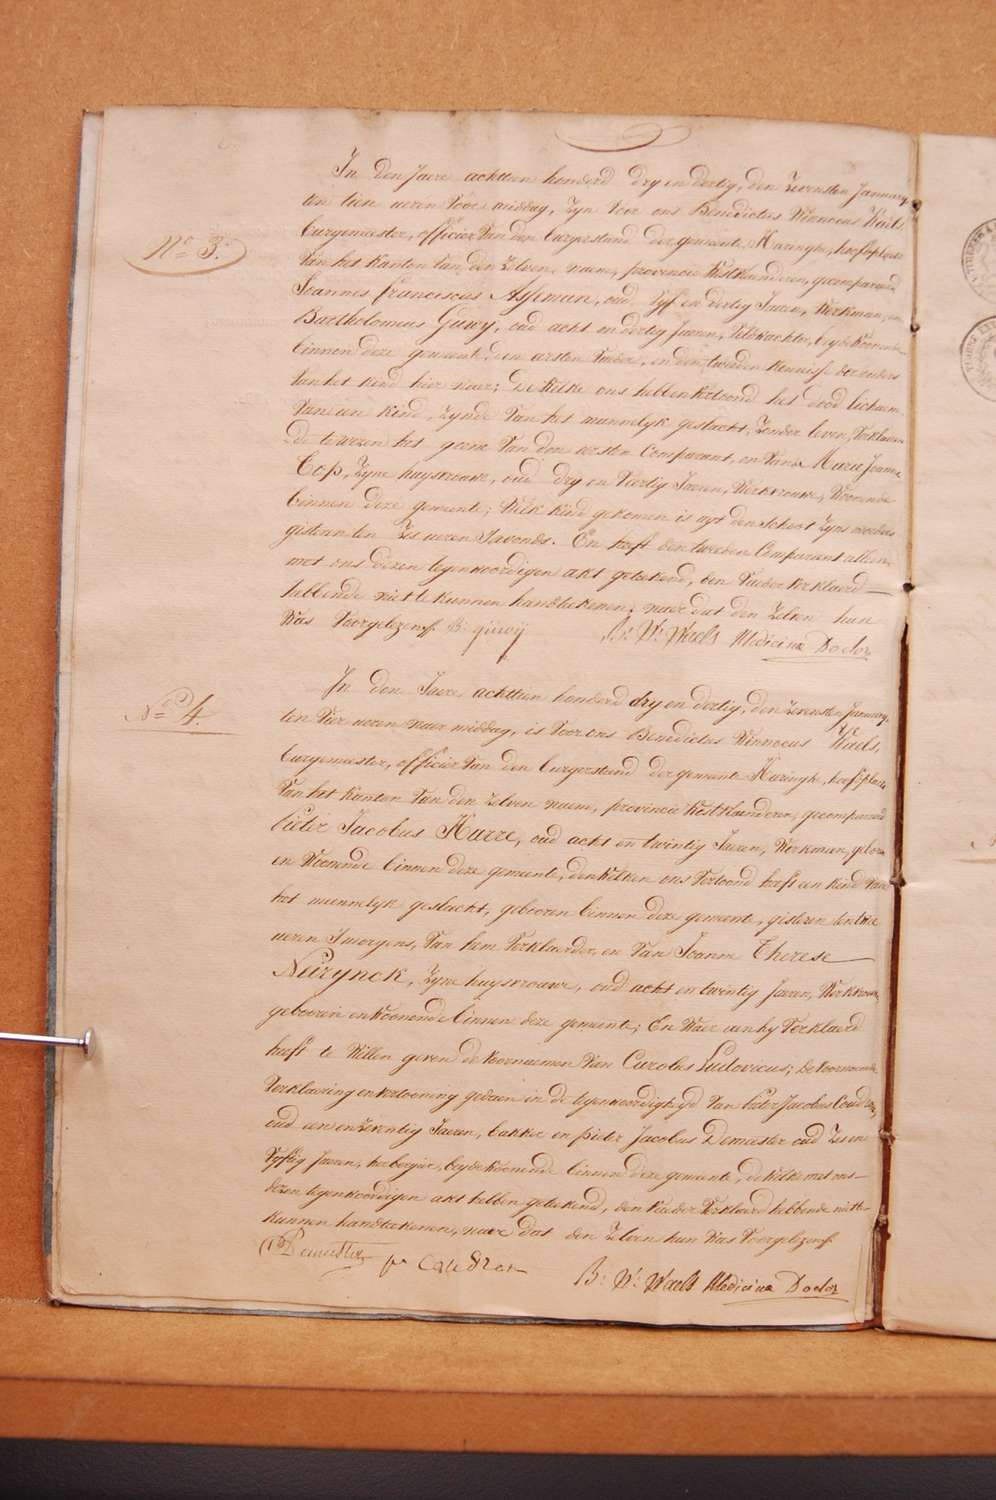 In den Jaere achttien honderd dry en dertig, den Zevensten January
ten tien ueren Voor middag, Zyn Voor ons Benedictus Winnocus Waels,
N.o 3.
burgemeester, officier Van den burgerstand der gemeente Haringhe, hoofdplaets
Van het Kanton Van den Zelven naem, provincie Westvlaenderen, gecompareerd
Joannes Franciscus Asseman, oud Vyf en dertig Jaeren, Werkman, en
Bartholomeus Guwy, oud acht en dertig Jaeren, Veldwachter, beyde Woonende
binnen deze gemeente, den eersten Vader, en den tweeden Kennisse der ouders
Van het Kind hier naer; de Welke ons hebben Vertoond het dood lichaem
Van een Kind, Zynde Van het mannelyk geslacht, Zonder leven, Verklaeren-
de te wezen het geene Van den eersten Comparant, en Van Maria Joanna
Cop, Zyne huysvrouw, oud dry en Veertig Jaeren, Werkvrouw, Woonende
binnen deze gemeente; Welk Kind gekomen is uyt den Schoot Zyns moeders
gisteren ten Zes ueren S'avonds. En heeft den tweeden Comparant alleen
met ons dezen tegenwoordigen akt geteekend, den Vader Verklaerd
hebbende niet te kunnen handteekenen, naer dat den Zelven hun
Was Voorgelezen. B: guwij B: W: Waels Medicinæ Doctor
In den Jaere achttien honderd dry en dertig, den Zevensten January,
N.o 4.
ten Vier ueren naer middag, is Voor ons Benedictus Winnocus Waels,
burgemeester, officier Van den burgerstand der gemeente Haringhe, hoofdplaets
Van het Kanton Van den Zelven naem, provincie Westvlaenderen, gecompareerd
Pieter Jacobus Harre, oud acht en twintig Jaeren, Werkman, geboren
en Woonende binnen deze gemeente, den Welken ons Vertoond heeft een Kind Van
het mannelyk geslacht, gebooren binnen deze gemeente, gisteren ten
ueren S'morgens, Van hem Verklaerder, en Van Joanna Therese
Neirynck, Zyne huysvrouwe, oud acht en twintig Jaeren, Werkvrouw,
gebooren en Woonende binnen deze gemeente; En Waer aen hy Verklaerd
heeft te Willen geven de Voornaemen Van Carolus Ludovicus; de Voornoemde
Verklaering en Vertooning gedaen in de tegenwoordigheyd Van Pieter Jacobus
oud een en Zeventig Jaeren, bakker en Pieter Jacobus Demeester oud Zes en
Vyftig Jaeren, herbergier, beyde Woonende binnen deze gemeente, de Welke met ons
dezen tegenwoordigen akt hebben geteekend, den Vader Verklaerd hebbende niet te
kunnen handteekenen, naer dat den Zelven hun Was Voorgelezen.
Demeester
B: W: Waels Medicinæ Doctor